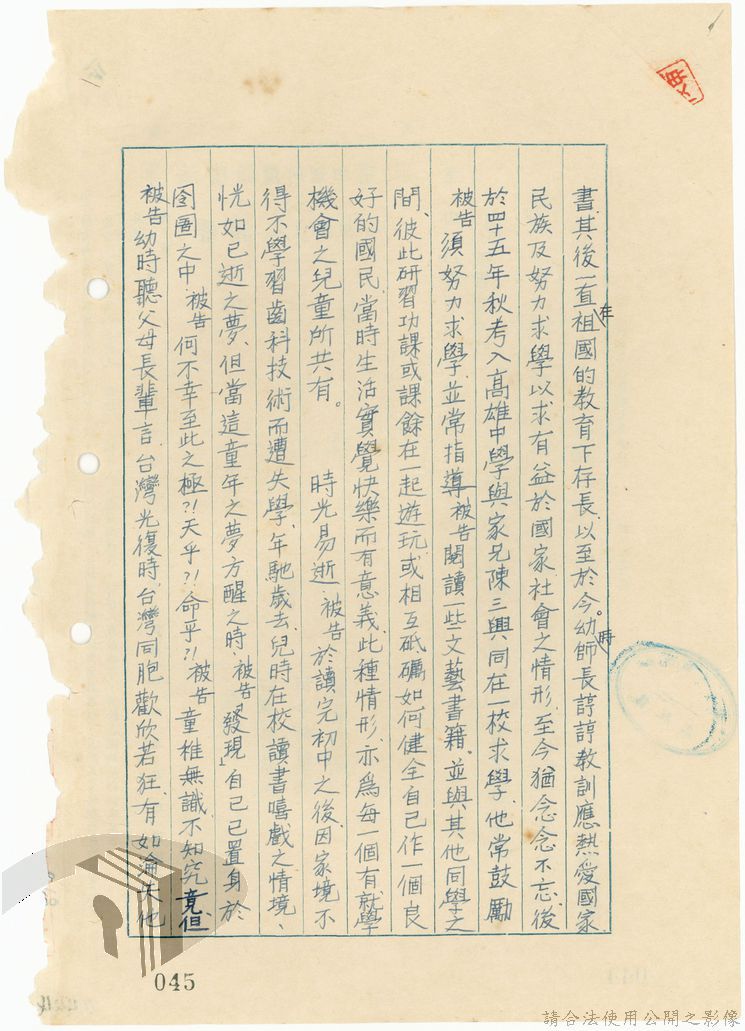 書。其後一直在祖國的教育下存長，以至於今。幼時師長諄諄教訓應熱愛國家
民族及努力求學以求有益於國家社會之情形，至今猶念念不忘。後
於四十五年秋考入高雄中學與家兄陳三興同在一校求學，他常鼓勵
被告須努力求學，並常指導被告閱讀一些文藝書籍，並與其他同學之
間，彼此研習功課或課餘在一起遊玩，或相互砥礪如何健全自己作一個良
好的國民，當時生活實覺快樂而有意義，此種情形，亦為每一個有就學
機會之兒童所共有。 時光易逝，被告於讀完初中之後，因家境不
得不學習齒科技術而遭失學，年馳歲去，兒時在校讀書嘻戲之情境、
恍如已逝之夢，但當這童年之夢方醒之時，被告「發現」自己已置身於
囹圄之中，被告何不幸至此之極?!天乎?!命乎?!被告童稚無識，不知究竟，但
被告幼時聽父母長輩言，台灣光復時，台灣同胞歡欣若狂，有如淪失他
045
請合法使用公開之影像